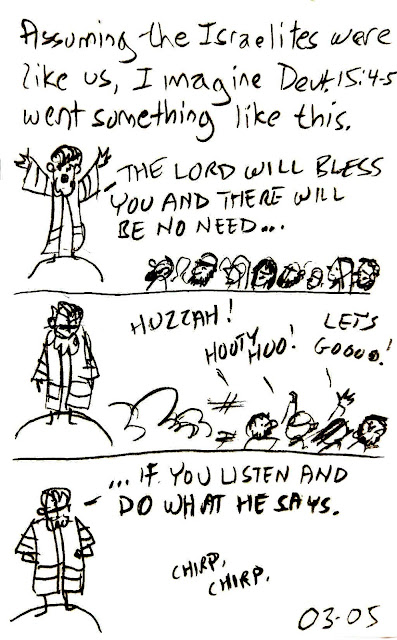 Assuming the Israelites were
like us, I imagine Deut. 15:4-5
went something like this.
THE LORD WILL BLESS
YOU AND THERE WILL
BE NO NEED...
HUZZAH!
HOOTY
HOO!
LET'S
GOOOO!
... IF YOU LISTEN AND
DO WHAT HE SAYS.
CHIRP,
CHIRP,
03-05